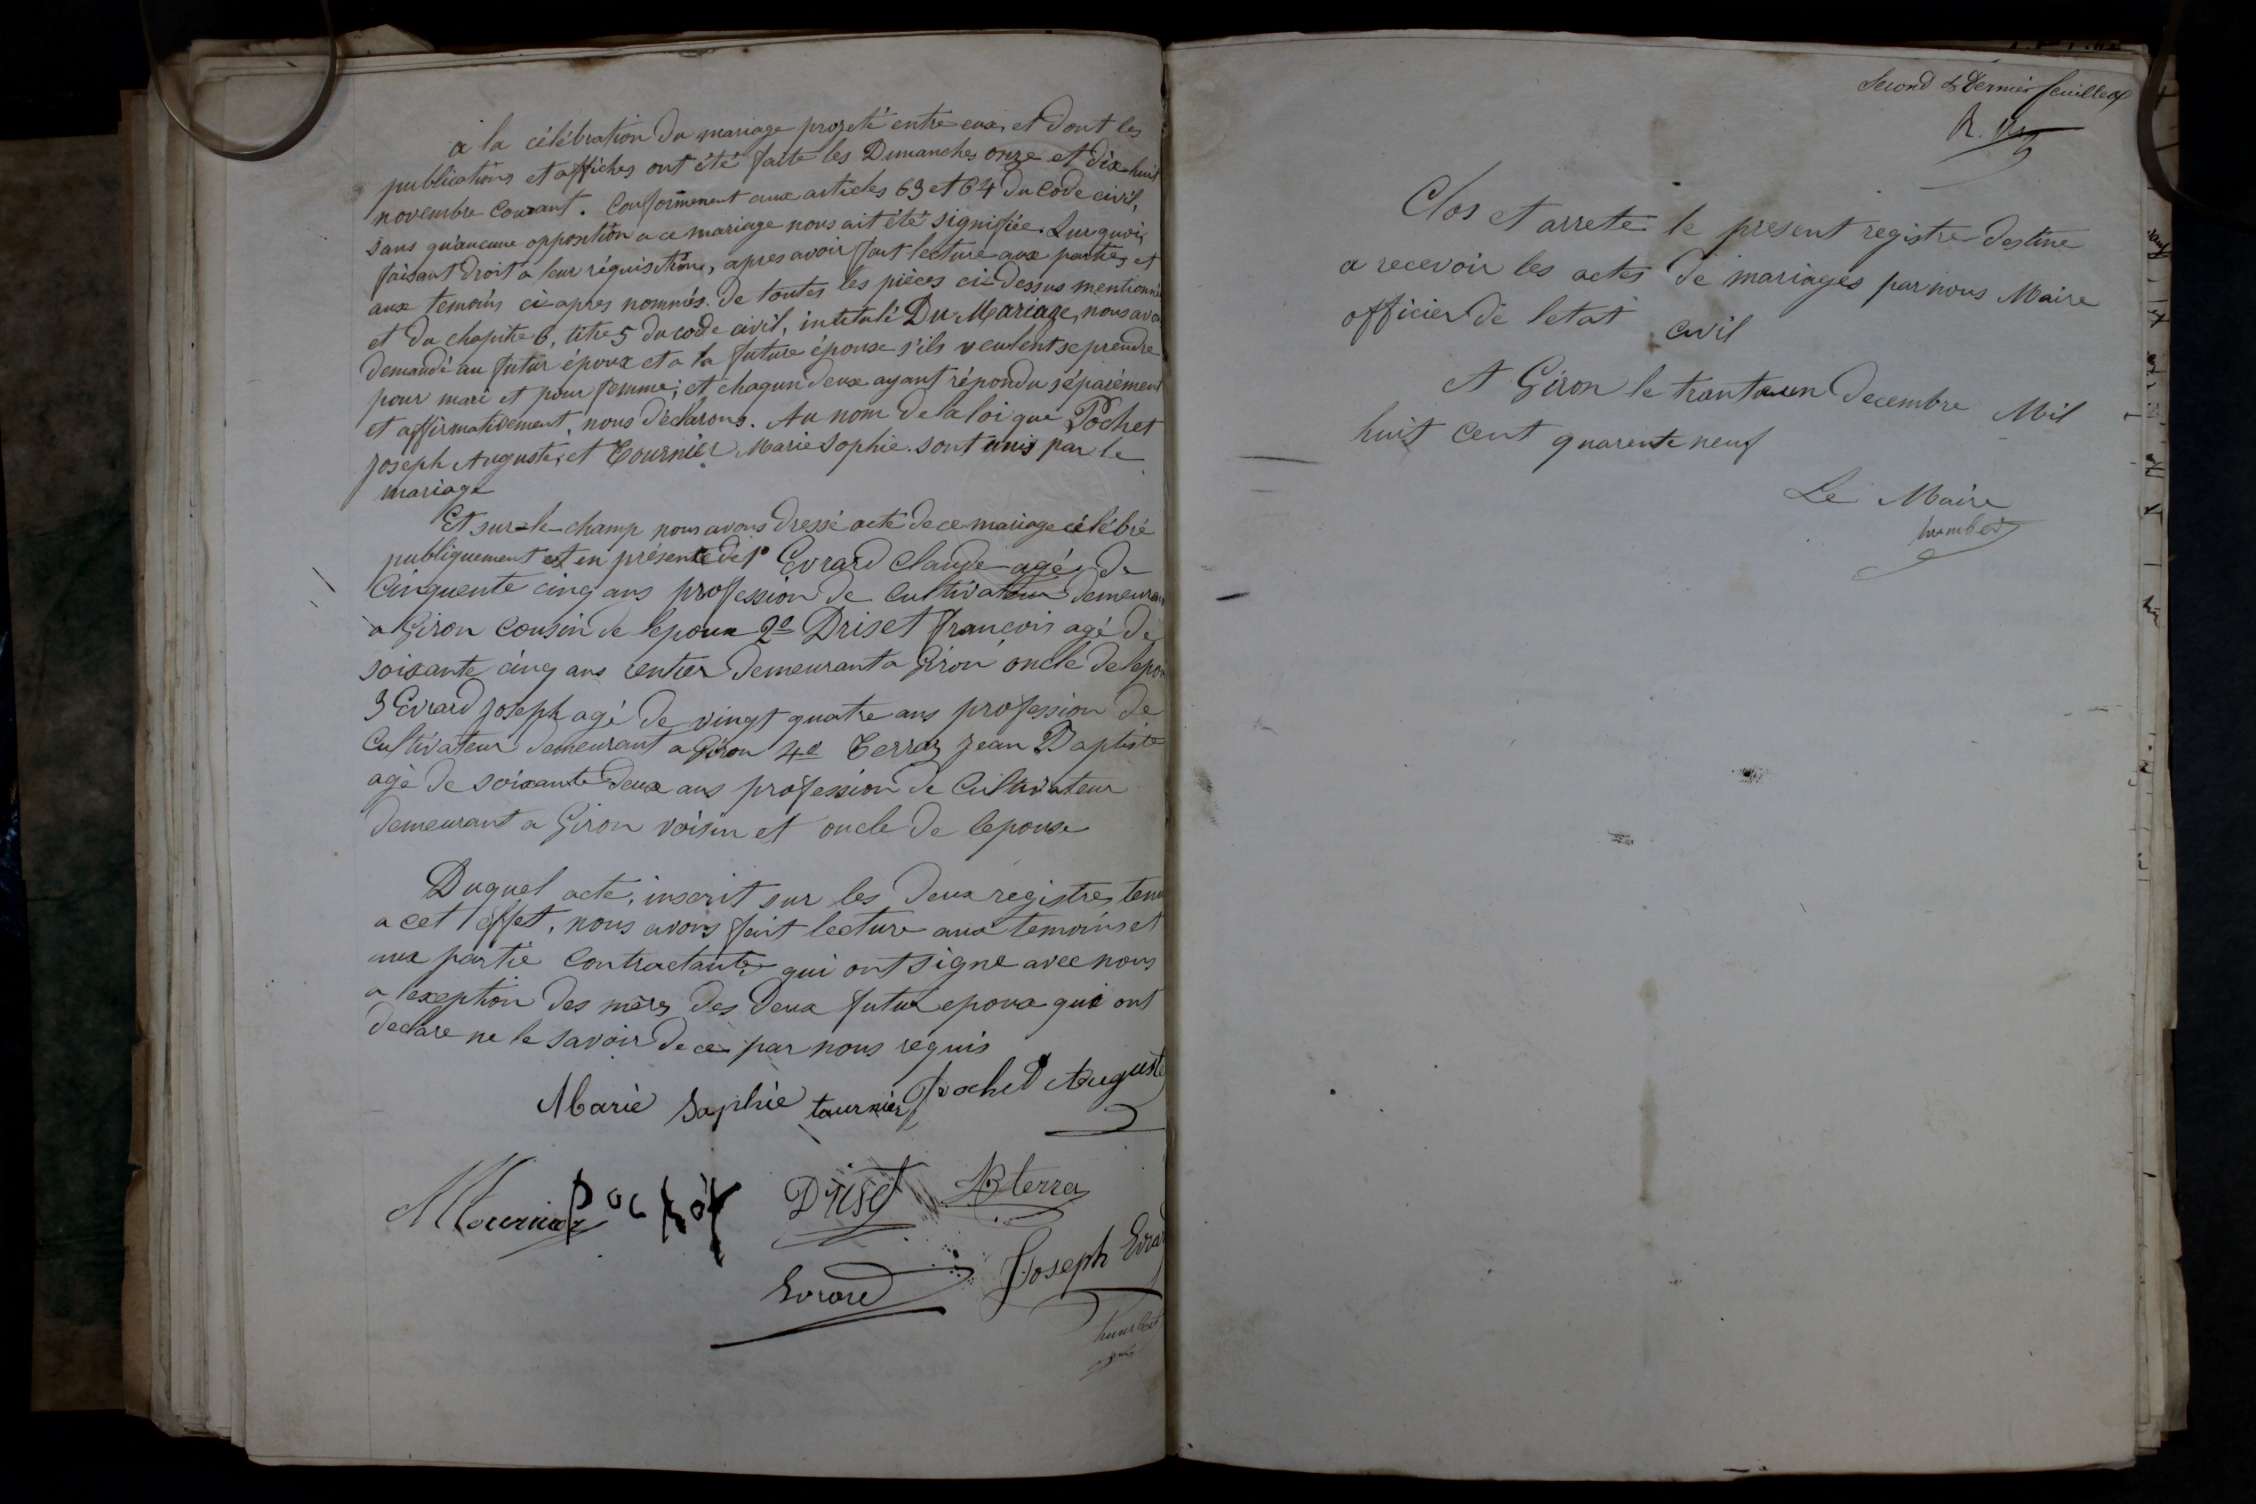 à la célébration du mariage projeté entre eux, et dont les
publications et affiches ont été faite les Dimanches onze et dix-huit
novembre courant. Conformement aux articles 63 et 64 du Code civil,
sans qu'aucune opposition a ce mariage nous ait été signifiée. Sur quoi,
faisant droit a leur réquisition, apres avoir fait lecture aux parties et
aux temoins ci-apres nommés. de toutes les pièces ci-dessus mentionnée
et du chapitre 6, titre 5 du code civil, intitulé Du Mariage, nous avon
demandé au futur époux et a la future épouse s'ils veulent se prendre
pour mari et pour femme; et chaqun deux ayant répondu séparément
et affirmativement, nous déclarons. Au nom de la loi que Pochet
Joseph Auguste, et Tournier Marie Sophie. sont unis par le
mariage
Et sur-le-champ nous avons dressé acte de ce mariage célébré
publiquement et en présence de 1º Evrard Claude agé de
Cinquente cinq ans profession de Cultivateur demeuran
a Giron Cousin de lepoux 2º Driset francois agé de
soixante cinq ans rentier demeurant a Giron oncle de lepou
3 Evrard Joseph agé de vingt quatre ans profession de
Cultivateur demeurant a Giron 4e Terraz Jean Baptiste
agé de soixante deux ans profession de Cultivateur
demeurant a Giron voisin et oncle de lepouse
Duquel acte, inscrit sur les deux registres tenu
a cet effet, nous avons fait lecture aux temoins et
aux partie Contractante qui ont signe avec nous
a lexeption des mères des deux futur epoux qui ont
declare ne le savoir de ce par nous requis
Marie Sophie tournier Pochet Auguste
Tournier Pochet Driset JB terra
Evrard Joseph Evrard
humbert
Second & Dernier feuillet
Clos et arrete le present registre destine
a recevoir les actes de mariages par nous Maire
officier de letat civil
A Giron le trante un decembre Mil
huit cent quarente neuf
Le Maire
humbert